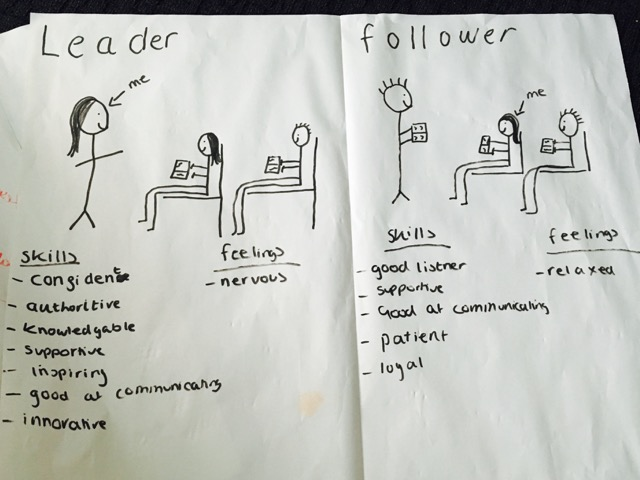 Leader
me
skills
- congident
- authoritive
- knowledgable
- supportive
- inspiring
- good at communicating
- innovative
feelings
- nervous
follower
me
skills
- good listner
- supportive
- Good at communicating
- patient
- loyal
feelings
- relaxed